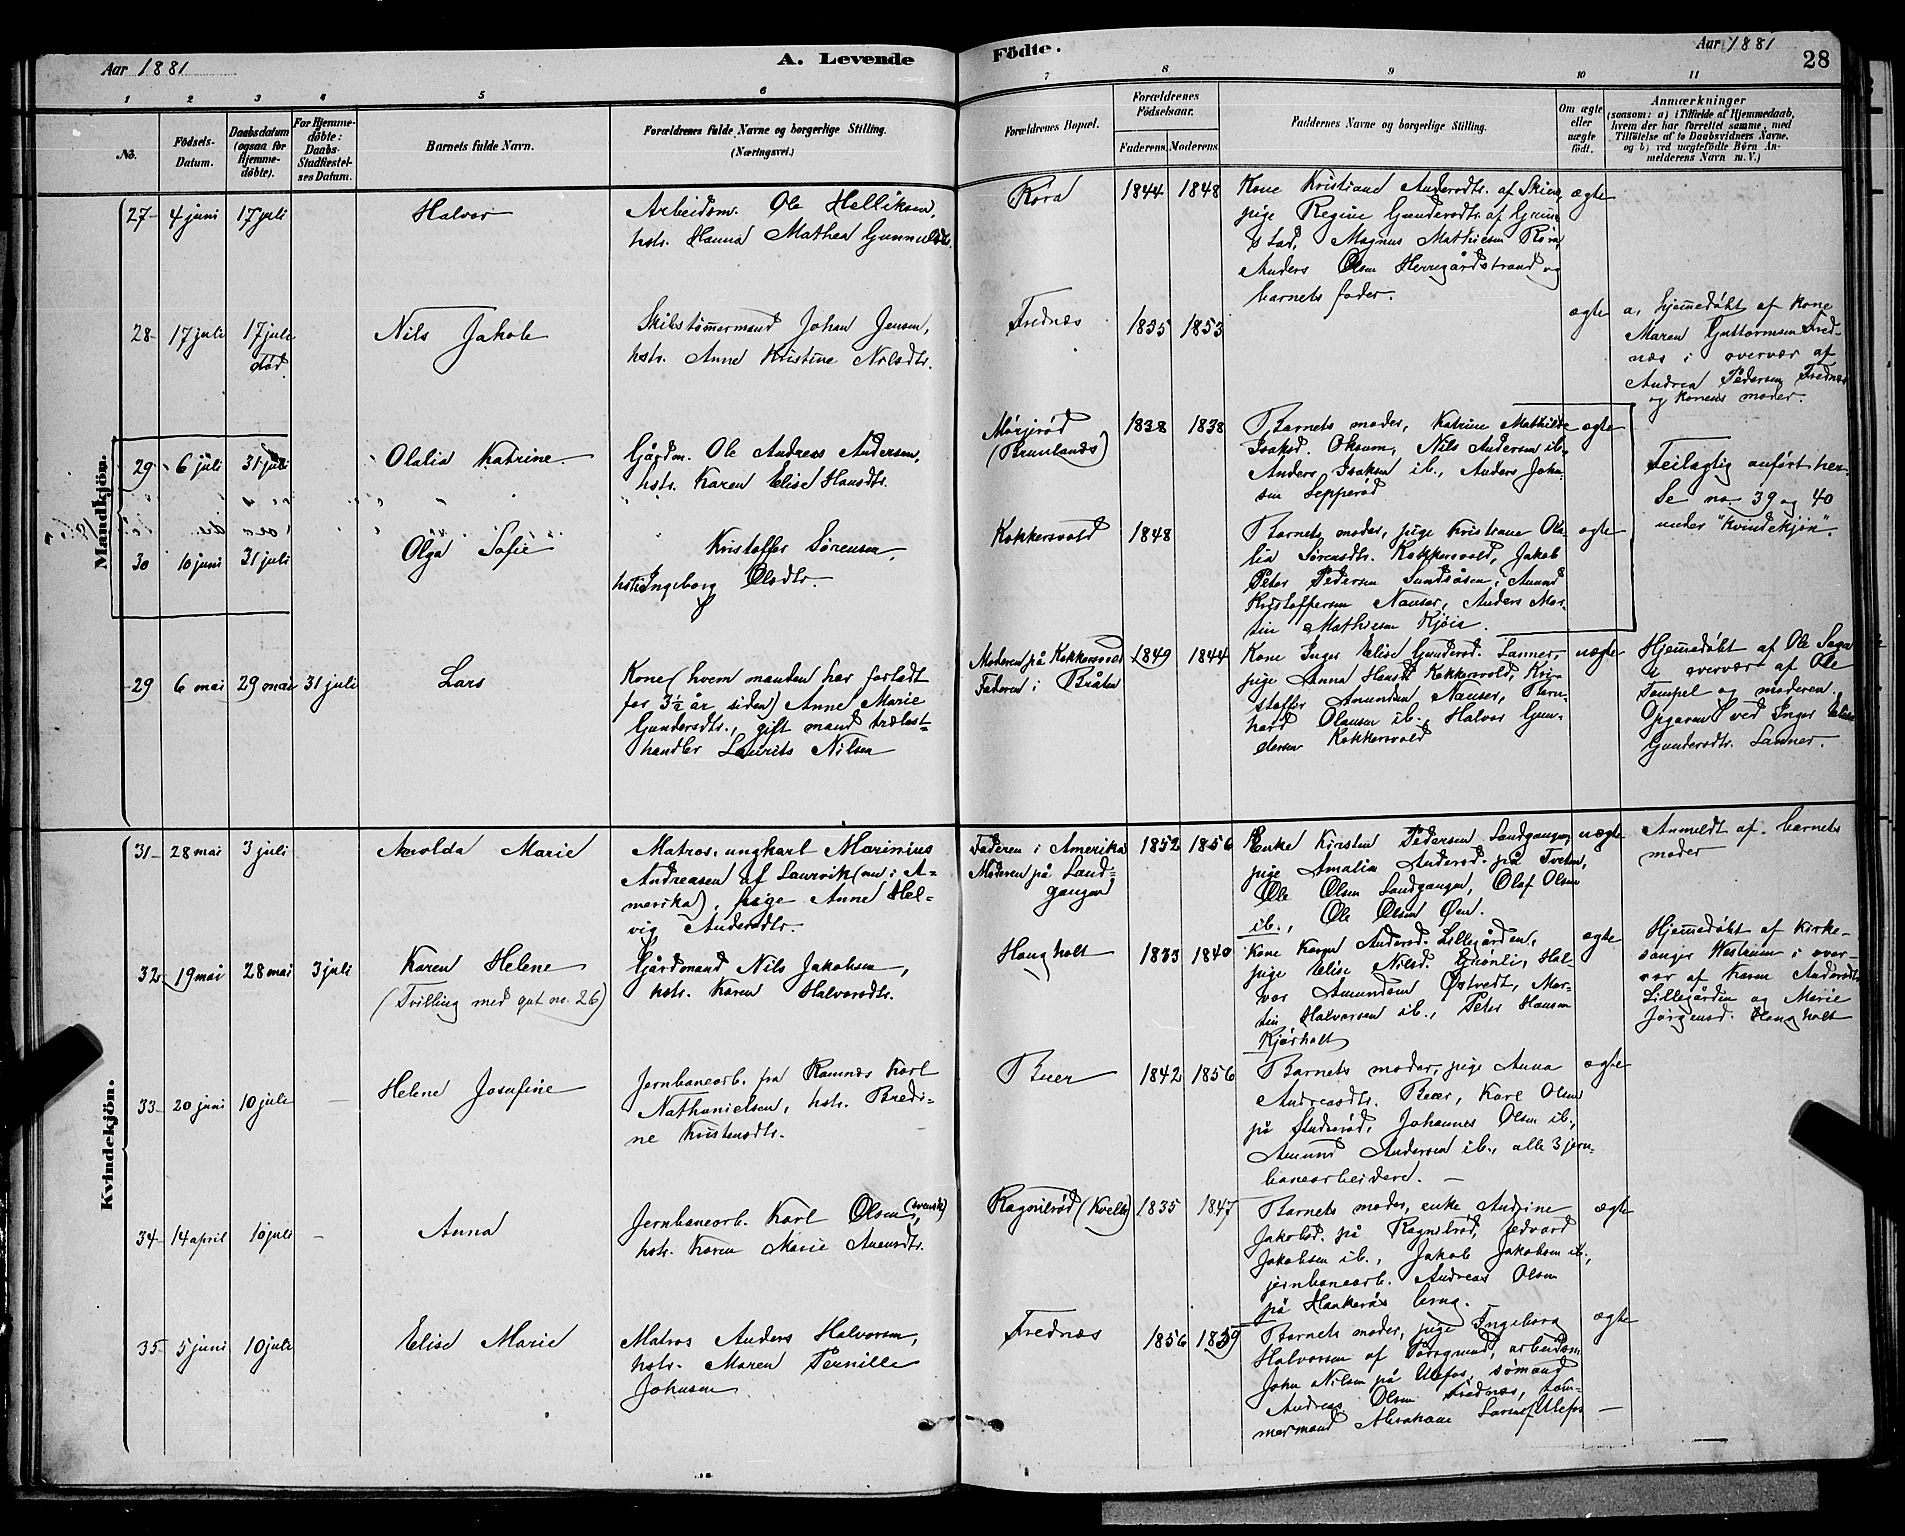 Aar 1881
A. Levende
Födte.
Aar 1881
28
1 2 3 4 5 6 7 8 9 10 11
No.
Födsels-
Datum.
Daabsdatum
(ogsaa for
Hjemme-
döbte).
For Hjemme-
döbte:
Daabs-
Stadfæstel-
ses Datum.
Barnets fulde Navn.
Forældrenes fulde Navne og borgerlige Stilling.
(Næringsvei.)
Forældrenes Bopæl.
Forældrenes
Födselsaar.
Faderens.
Moderens.
Faddernes Navne og borgerlige Stilling.
Om ægte
eller
uægte
födt.
Anmærkninger
(saasom: a) i Tilfælde af Hjemmedaab,
hvem der har forrettet samme, med
Tilföielse af to Daabsvidners Navne,
og b) ved uægtefödte Börn An-
melderens Navn m. V.)
Mandkjön.
27 4 juni 17 juli
Halvor
Arbeidsm. Ole Helliksen,
hstr. Hanna Mathea Gunnulsdt.
Röra
1844 1848
Kone Kristiane Andersdtr. af Skien,
pige Regine Gundersdtr. af Grim-
stad, Magnus Mathiesen Röra,
Anders Olsen Herregårdstrand og
barnets fader.
ægte
28 17 juli 17 juli
död.
Nils Jakob
Skibstömermand Johan Jensen,
hstr. Anne Kristine Nilsdtr.
Frednæs
1835 1853
ægte
a, hjemedöbt af kone
Maren Guttormsen Fred-
næs i overvær af
Andrea Pedersen Frednæs
og konens moder.
29 6 juli 31 juli
Olalia Katrine
Gårdm. Ole Andreas Andersen,
hstr. Karen Elise Hansdtr.
Mörjeröd
(Brunlands)
1838 1838
Barnets moder, Katrine Mathilde
Isaksd. Oksum, Nils Andersen ib.
Anders Isaksen ib., Anders Johan-
sen Sepperöd
ægte
Feilagtig anfört her.
Se no 39 og 40
under "Kvindekjön".
30 10 juni 31 juli
Olga Sofie
Kristoffer Sörensen,
hstr. Ingeborg Olsdtr.
Kokkersvold
1848
Barnets moder, pige Kristiane Ola-
lia Sörensdtr. Kokkersvold, Jakob
Peter Pedersen Sundsåsen, Amund
Kristoffersen Nauser, Anders Mar-
tin Mathiesen Kjöis.
ægte
29 6 mai 29 mai 31 juli
Lars
Kone (hvem manden har forladt
for 3½ år siden) Anne Marie
Gundersdtr., gift mand trælast-
handler Laurits Nilsen
Moderen på Kokkersvold
Faderen i Bråten
1849 1844
Kone Inger Elise Gundersd. Lanner,
pige Anna Hansd. Kokkersvold, Kri-
stoffer Amundsen Nauser, Bern-
hard Olausen ib., Halvor Gun-
dersen Kokkersvold
uægte
Hjemedöbt af Ole Saga
i overvær af Ole
Tempel og moderen.
Opgaven ved Inger Elise
Gundersdtr. Lanner.
Kvindekjön.
31 28 mai 3 juli
Arolda Marie
Matros, ungkarl Marinius
Andreasen af Laurvik (nu i A-
merika), pige Anne Hel-
vig Andersdtr.
Faderen i Amerika
Moderen på Land-
gangen
1852 1856
Enke Kirsten Pedersen Landgangen,
pige Amalia Andersd. på Tveten,
Ole Olsen Landgangen, Olaf Olsen
ib., Ole Olsen Öen.
uægte
Anmeldt af barnets
moder
32 19 mai 28 mai 3 juli
Karen Helene
(Tvilling med gut no. 26)
Gårdmand Nils Jakobsen,
hstr. Karen Halvorsdtr.
Haugholt
1833 1840
Kone Karen Andersd. Lillegården,
pige Elise Nilsd. Grönli, Hal-
vor Amundsen Östvedt, Mar-
tin Halvorsen ib., Peter Hansen
Kjörholt
ægte
Hjemedöbt af Kirke-
sanger Westrum i over-
vær af Karen Andersdtr.
Lillegården og Marie
Jörgensd. Haugholt
33 20 juni 10 juli
Helene Josefine
Jernbanearb. fra Ramnæs Karl
Nathanielsen, hstr. Bredi-
ne Kristensdtr.
Buer
1842 1856
Barnets moder, pige Anna
Andreasdtr. Buer, Karl Olsen
på Stuberöd, Johannes Olsen ib.,
Amund Andersen ib., alle 3 jern-
banearbeidere.
ægte
34 14 april 10 juli
Anna
Jernbanearb. Karl Olsen (svensk),
hstr. Karen Marie Anensdtr.
Ragnilröd (Kvelle)
1835 1847
Barnets moder, enke Andrine
Jakobsd. på Ragnilröd, Edvard
Jakobsen ib., Jakob Jakobsen ib.,
jernbanearb. Andreas Olsen
på Haakeräs brug.
ægte
35 5 juni 10 juli
Elise Marie
Matros Anders Halvorsen,
hstr. Maren Pernille
Johnsen
Frednæs
1856 1859
Barnets moder, pige Ingeborg
Halvorsen af Porsgrund, arbeidsm.
John Nilsen på Ulefos, sömand
Andreas Olsen Frednæs, töm-
mermand Abraham Larsen Ulefos
ægte